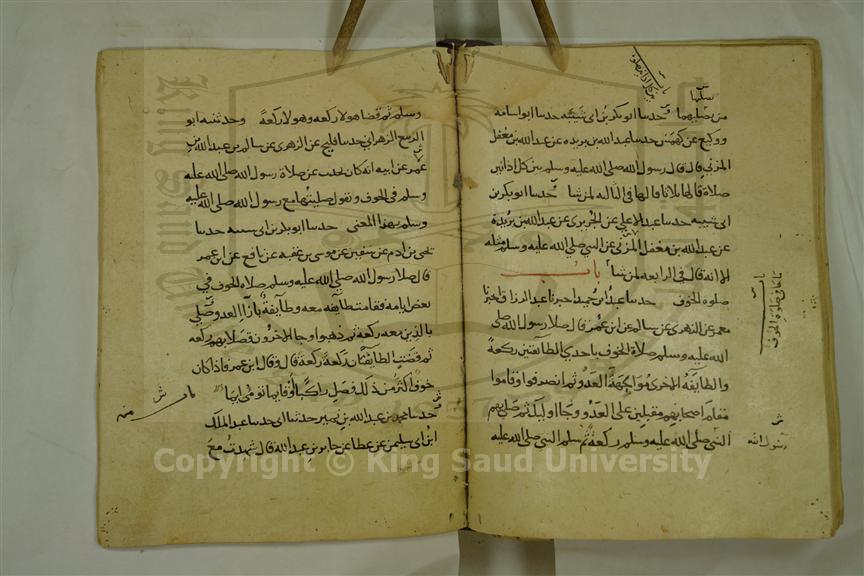 من صليهما حدثنا ابو بكر بن ابي شيبة حدثنا ابو اسامة
ووكيع عن كهمس حدثنا عبد الله بن بريدة عن عبد الله بن مغفل
المزني قال قال رسول الله صلى الله عليه وسلم بين كل اذانين
صلاة قالها ثلاثا قال في الثالثة لمن شا حدثنا ابو بكر بن
ابي شيبة حدثنا عبد الاعلى عن الجريري عن عبد الله بن بريدة
عن عبد الله بن مغفل المزني عن النبي صلى الله عليه وسلم مثله
الا انه قال في الرابعة لمن شا باب
صلوة الخوف حدثنا عبد بن حميد اخبرنا عبد الرزاق اخبرنا
معمر عن الزهري عن سالم عن ابن عمر قال صلا رسول الله صلى
الله عليه وسلم صلاة الخوف باحدى الطايفتين ركعة
والطايفة الاخرى مواجهة العدو ثم انصرفوا وقاموا
مقام اصحابهم مقبلين على العدو وجا اوليك ثم صلى بهم
النبي صلى الله عليه وسلم ركعة ثم سلم النبي صلى الله عليه
رسول الله
وسلم ثم قضا هولا ركعة وهولا ركعة وحدثنيه ابو
الربيع الزهراني حدثنا فليح عن الزهري عن سالم بن عبد الله بن
عمر عن ابيه انه كان يحدث عن صلاة رسول الله صلى الله عليه
وسلم في الخوف ويقول صليتها مع رسول الله صلى الله عليه
وسلم بهذا المعنى حدثنا ابو بكر بن ابي شيبة حدثنا
يحيى بن ادم عن سفين عن موسى بن عقبة عن نافع عن ابن عمر
قال صلا رسول الله صلى الله عليه وسلم صلاة الخوف في
بعض ايامه فقامت طايفة معه وطايفة بازا العدو فصلى
بالذين معه ركعة ثم ذهبوا وجا الاخرون فصلا بهم ركعة
ثم قضت الطايفتان ركعة ركعة قال وقال ابن عمر فاذا كان
خوف اكثر من ذلك فصل راكبا او قايما تومي ايما
حدثنا محمد بن عبد الله بن نمير حدثنا ابي حدثنا عبد الملك
ابن ابي سليمن عن عطا عن جابر بن عبد الله قال شهدت مع
Copyright © King Saud University